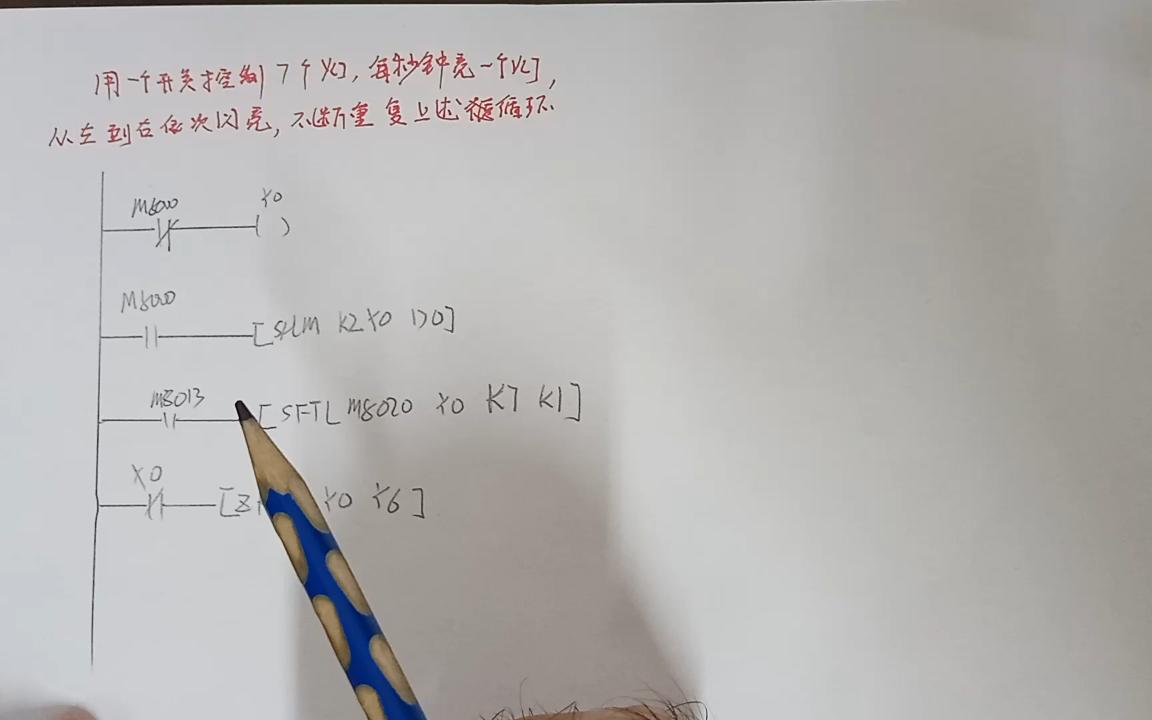 用一个开关控制7个灯,每秒钟亮一个灯,
从左到右依次闪亮,不断重复上述循环
M8000 Y0
( )
M8000
[SUM K2Y0 D0]
M8013
[SFTL M8020 Y0 K7 K1]
X0
[Z Y0 Y6]